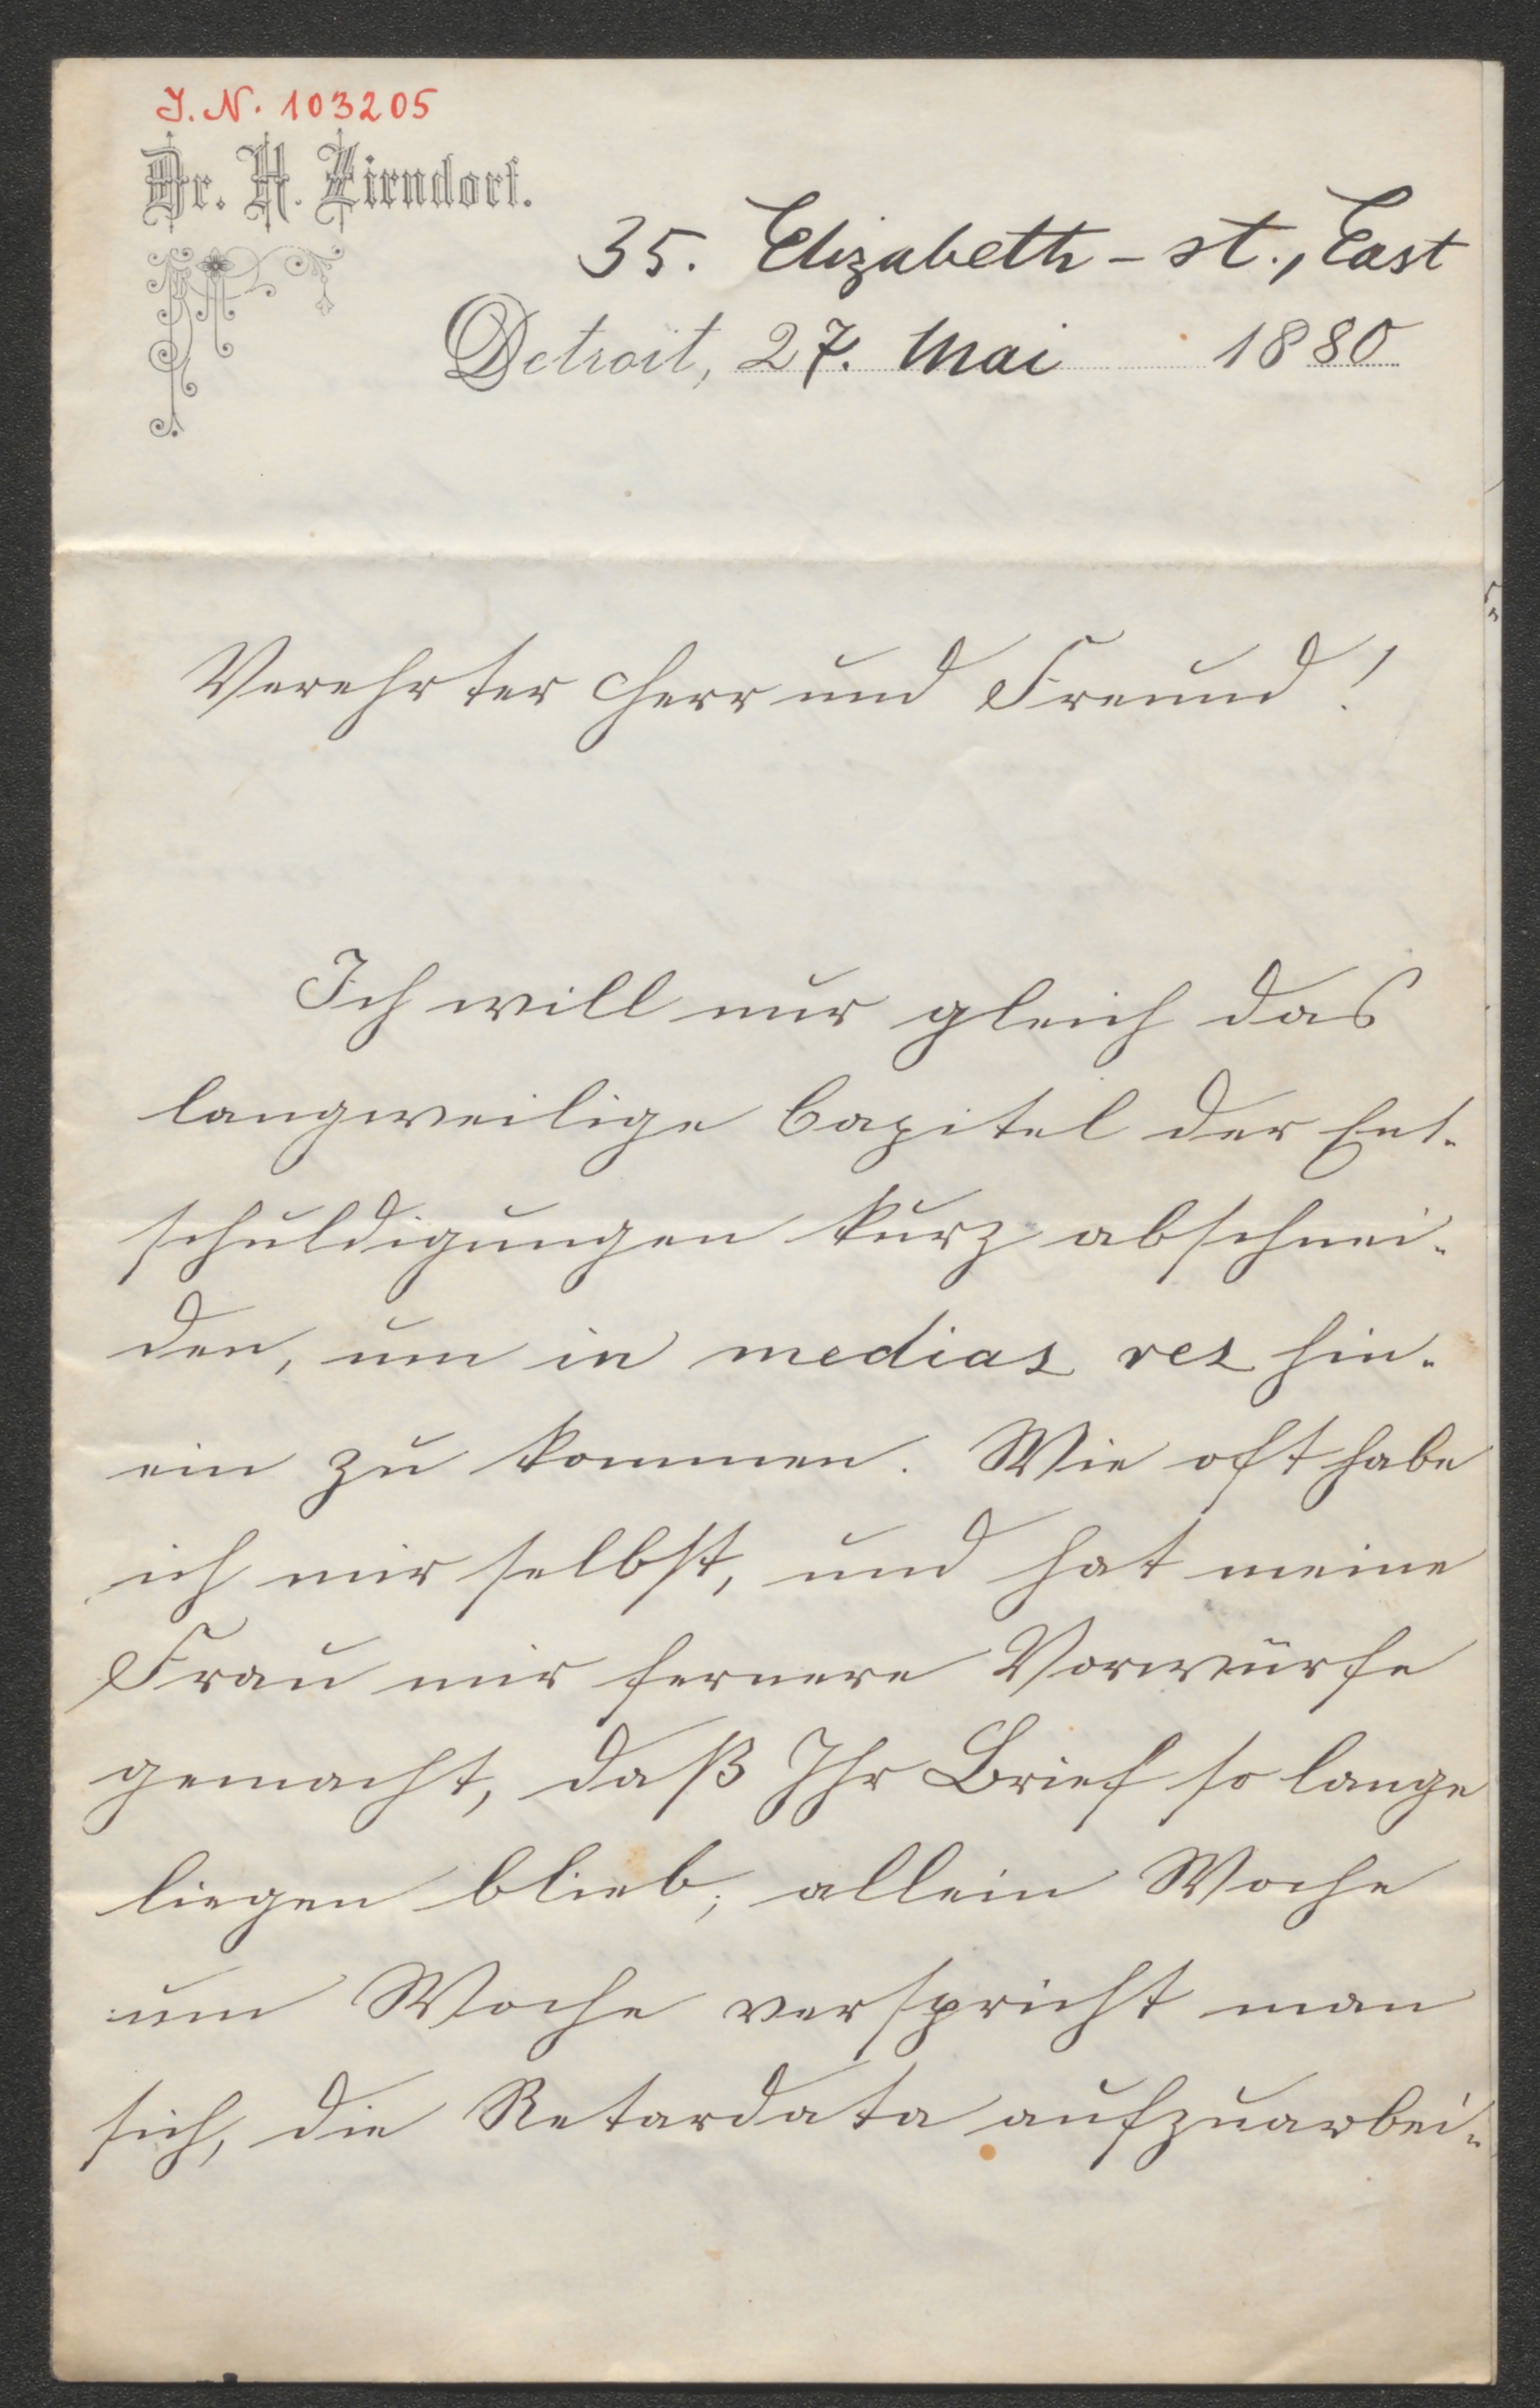 J. N. 103205
Dr. H. Zirndorf.
35. Elizabeth-st., East
Detroit, 27. Mai 1880
Verehrter Herr und Freund!
Ich will nur gleich das
langweilige Capitel der Ent-
schuldigungen kurz abschnei-
den, um in medias res hin-
ein zu kommen. Wie oft habe
ich mir selbst, und hat meine
Frau mir fernere Vorwürfe
gemacht, daß Ihr Brief so lange
liegen blieb; allein Woche
um Woche verspricht man
sich, die Retardata aufzuarbei-